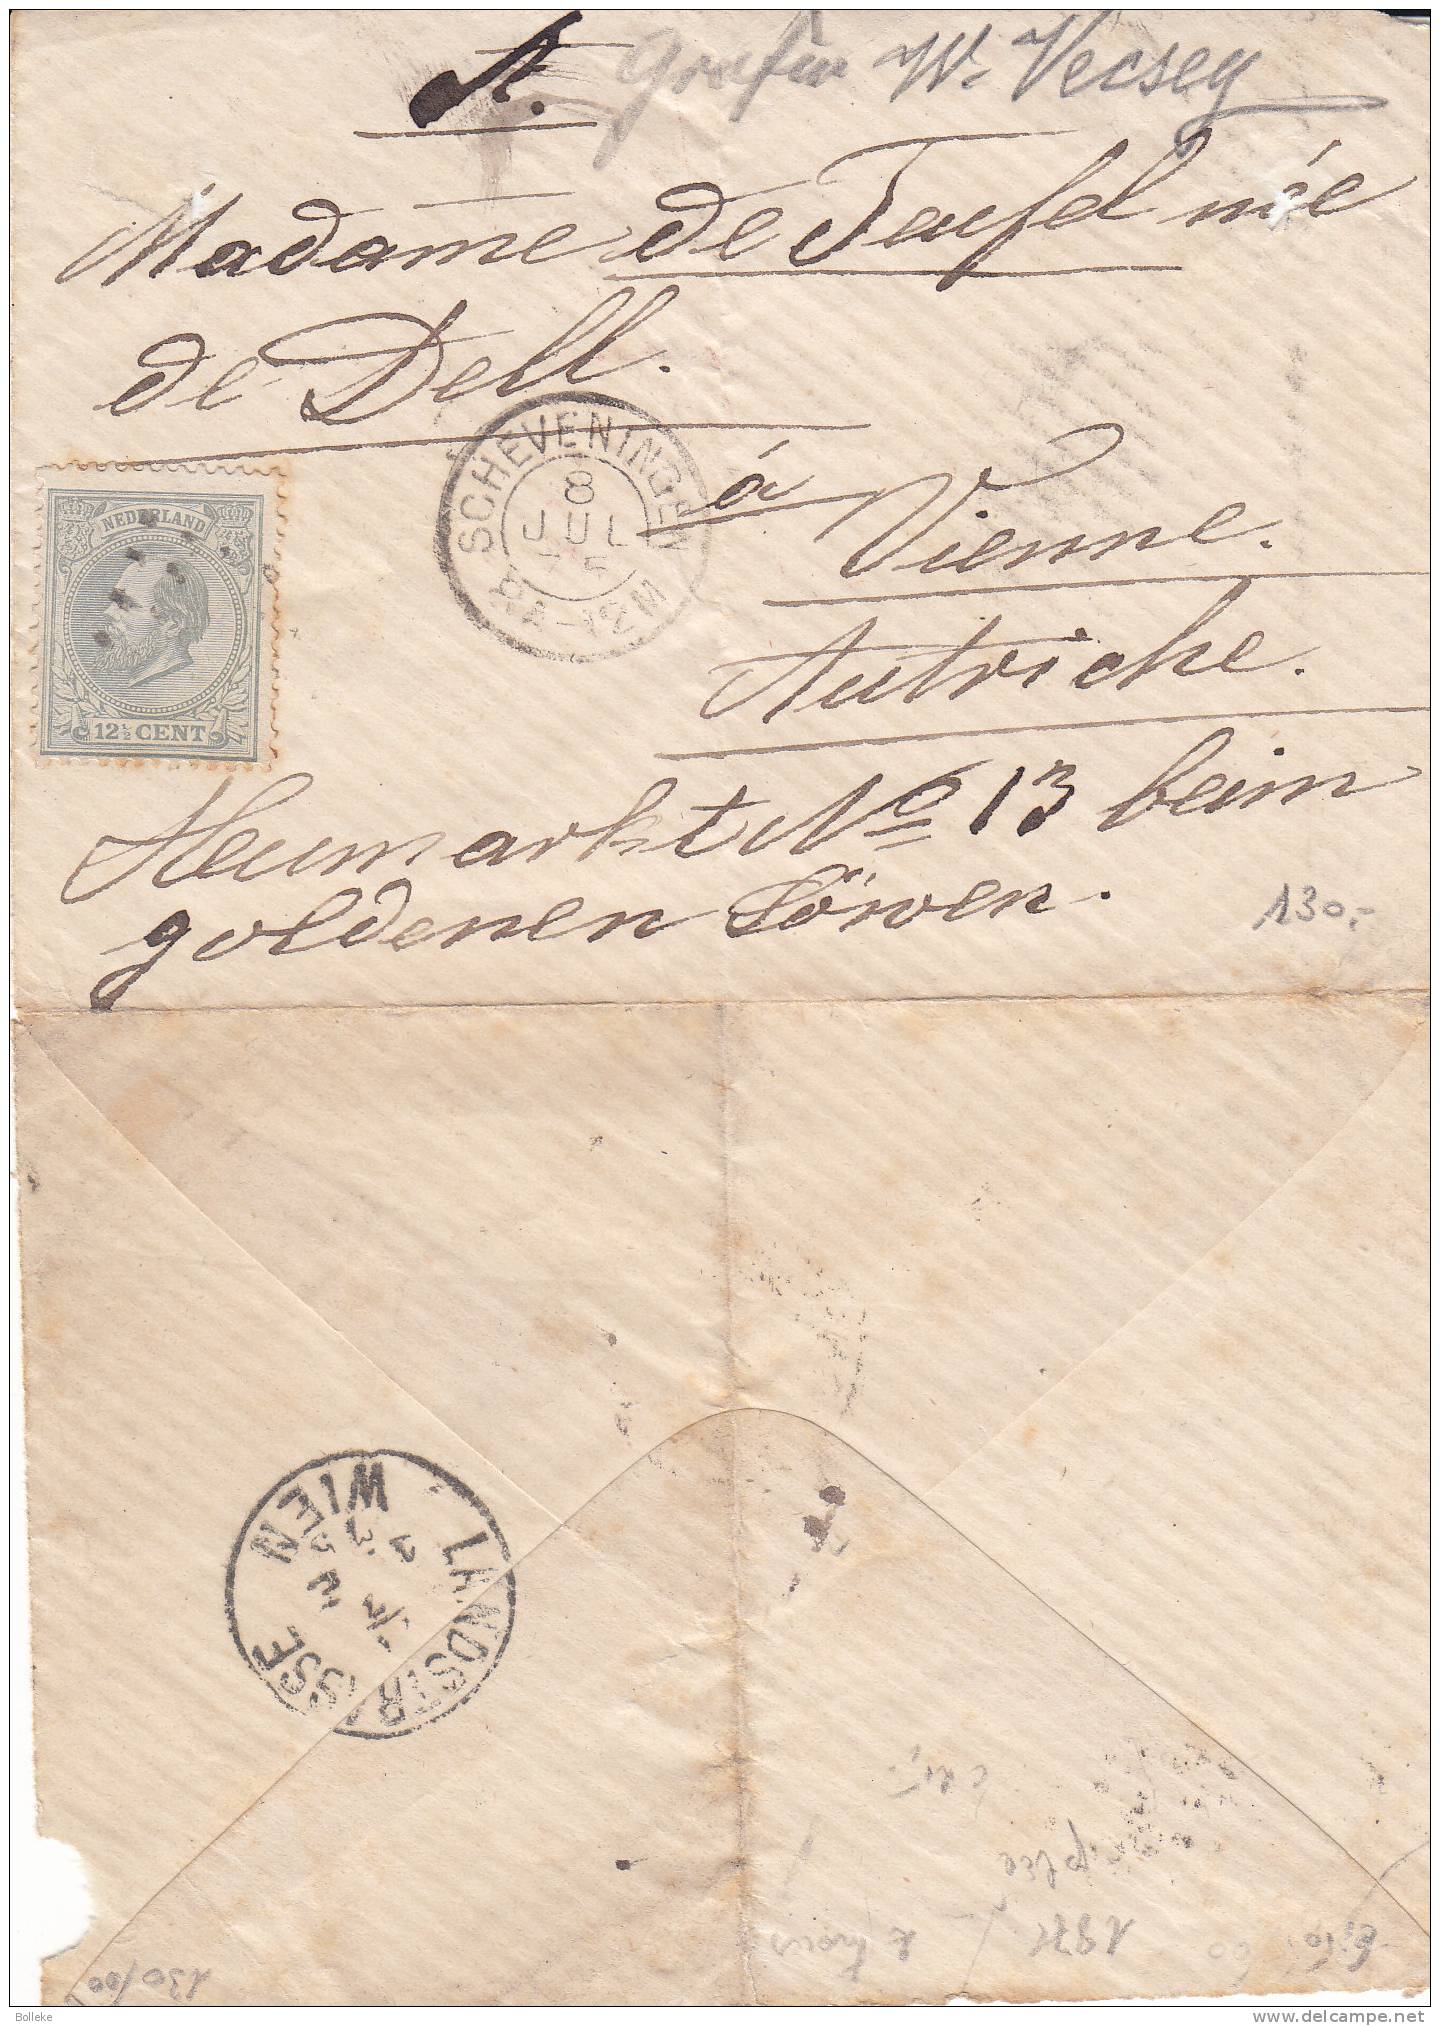 Gräfin W. Vecsey
Madame de Teufel née
de Dell.
à
Vienne.
Autriche.
Heumarkt No 13 beim
goldenen Löwen.
NEDERLAND
12½ CENT
SCHEVENINGEN
8
JUL
75
130,-
WIEN
LANDSTRASSE
130/00
Bolleke
www.delcampe.net